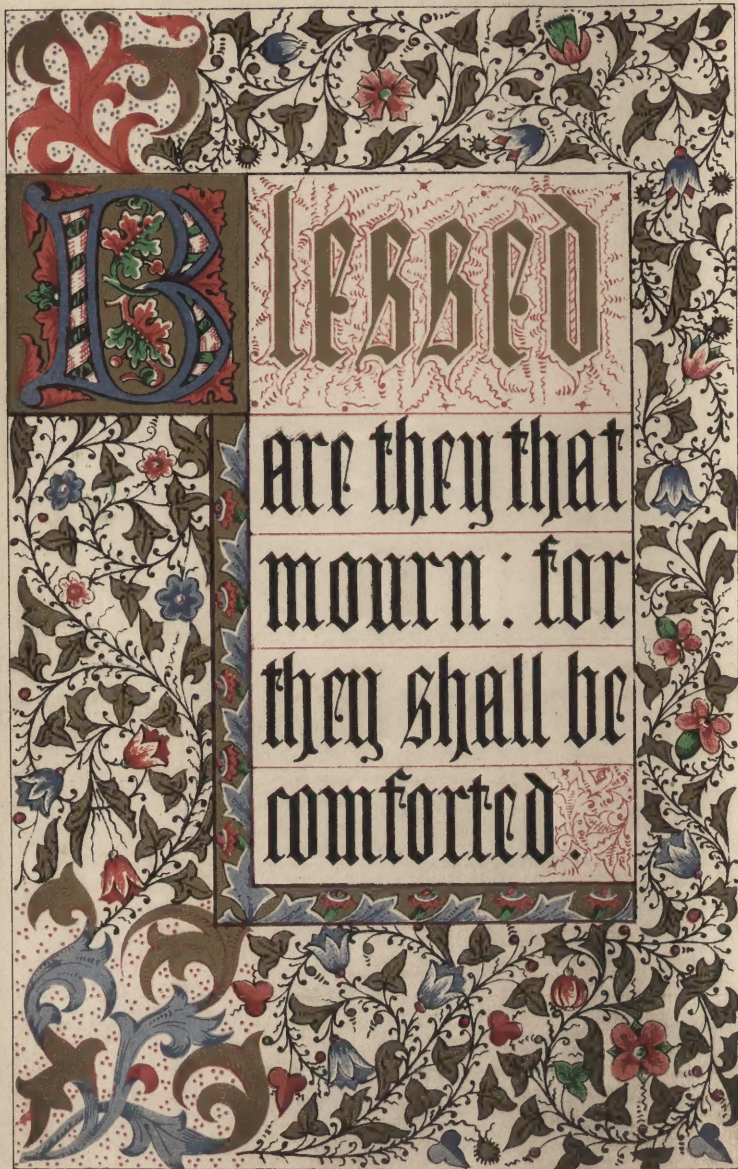 Blessed
are they that
mourn: for
they shall be
comforted.